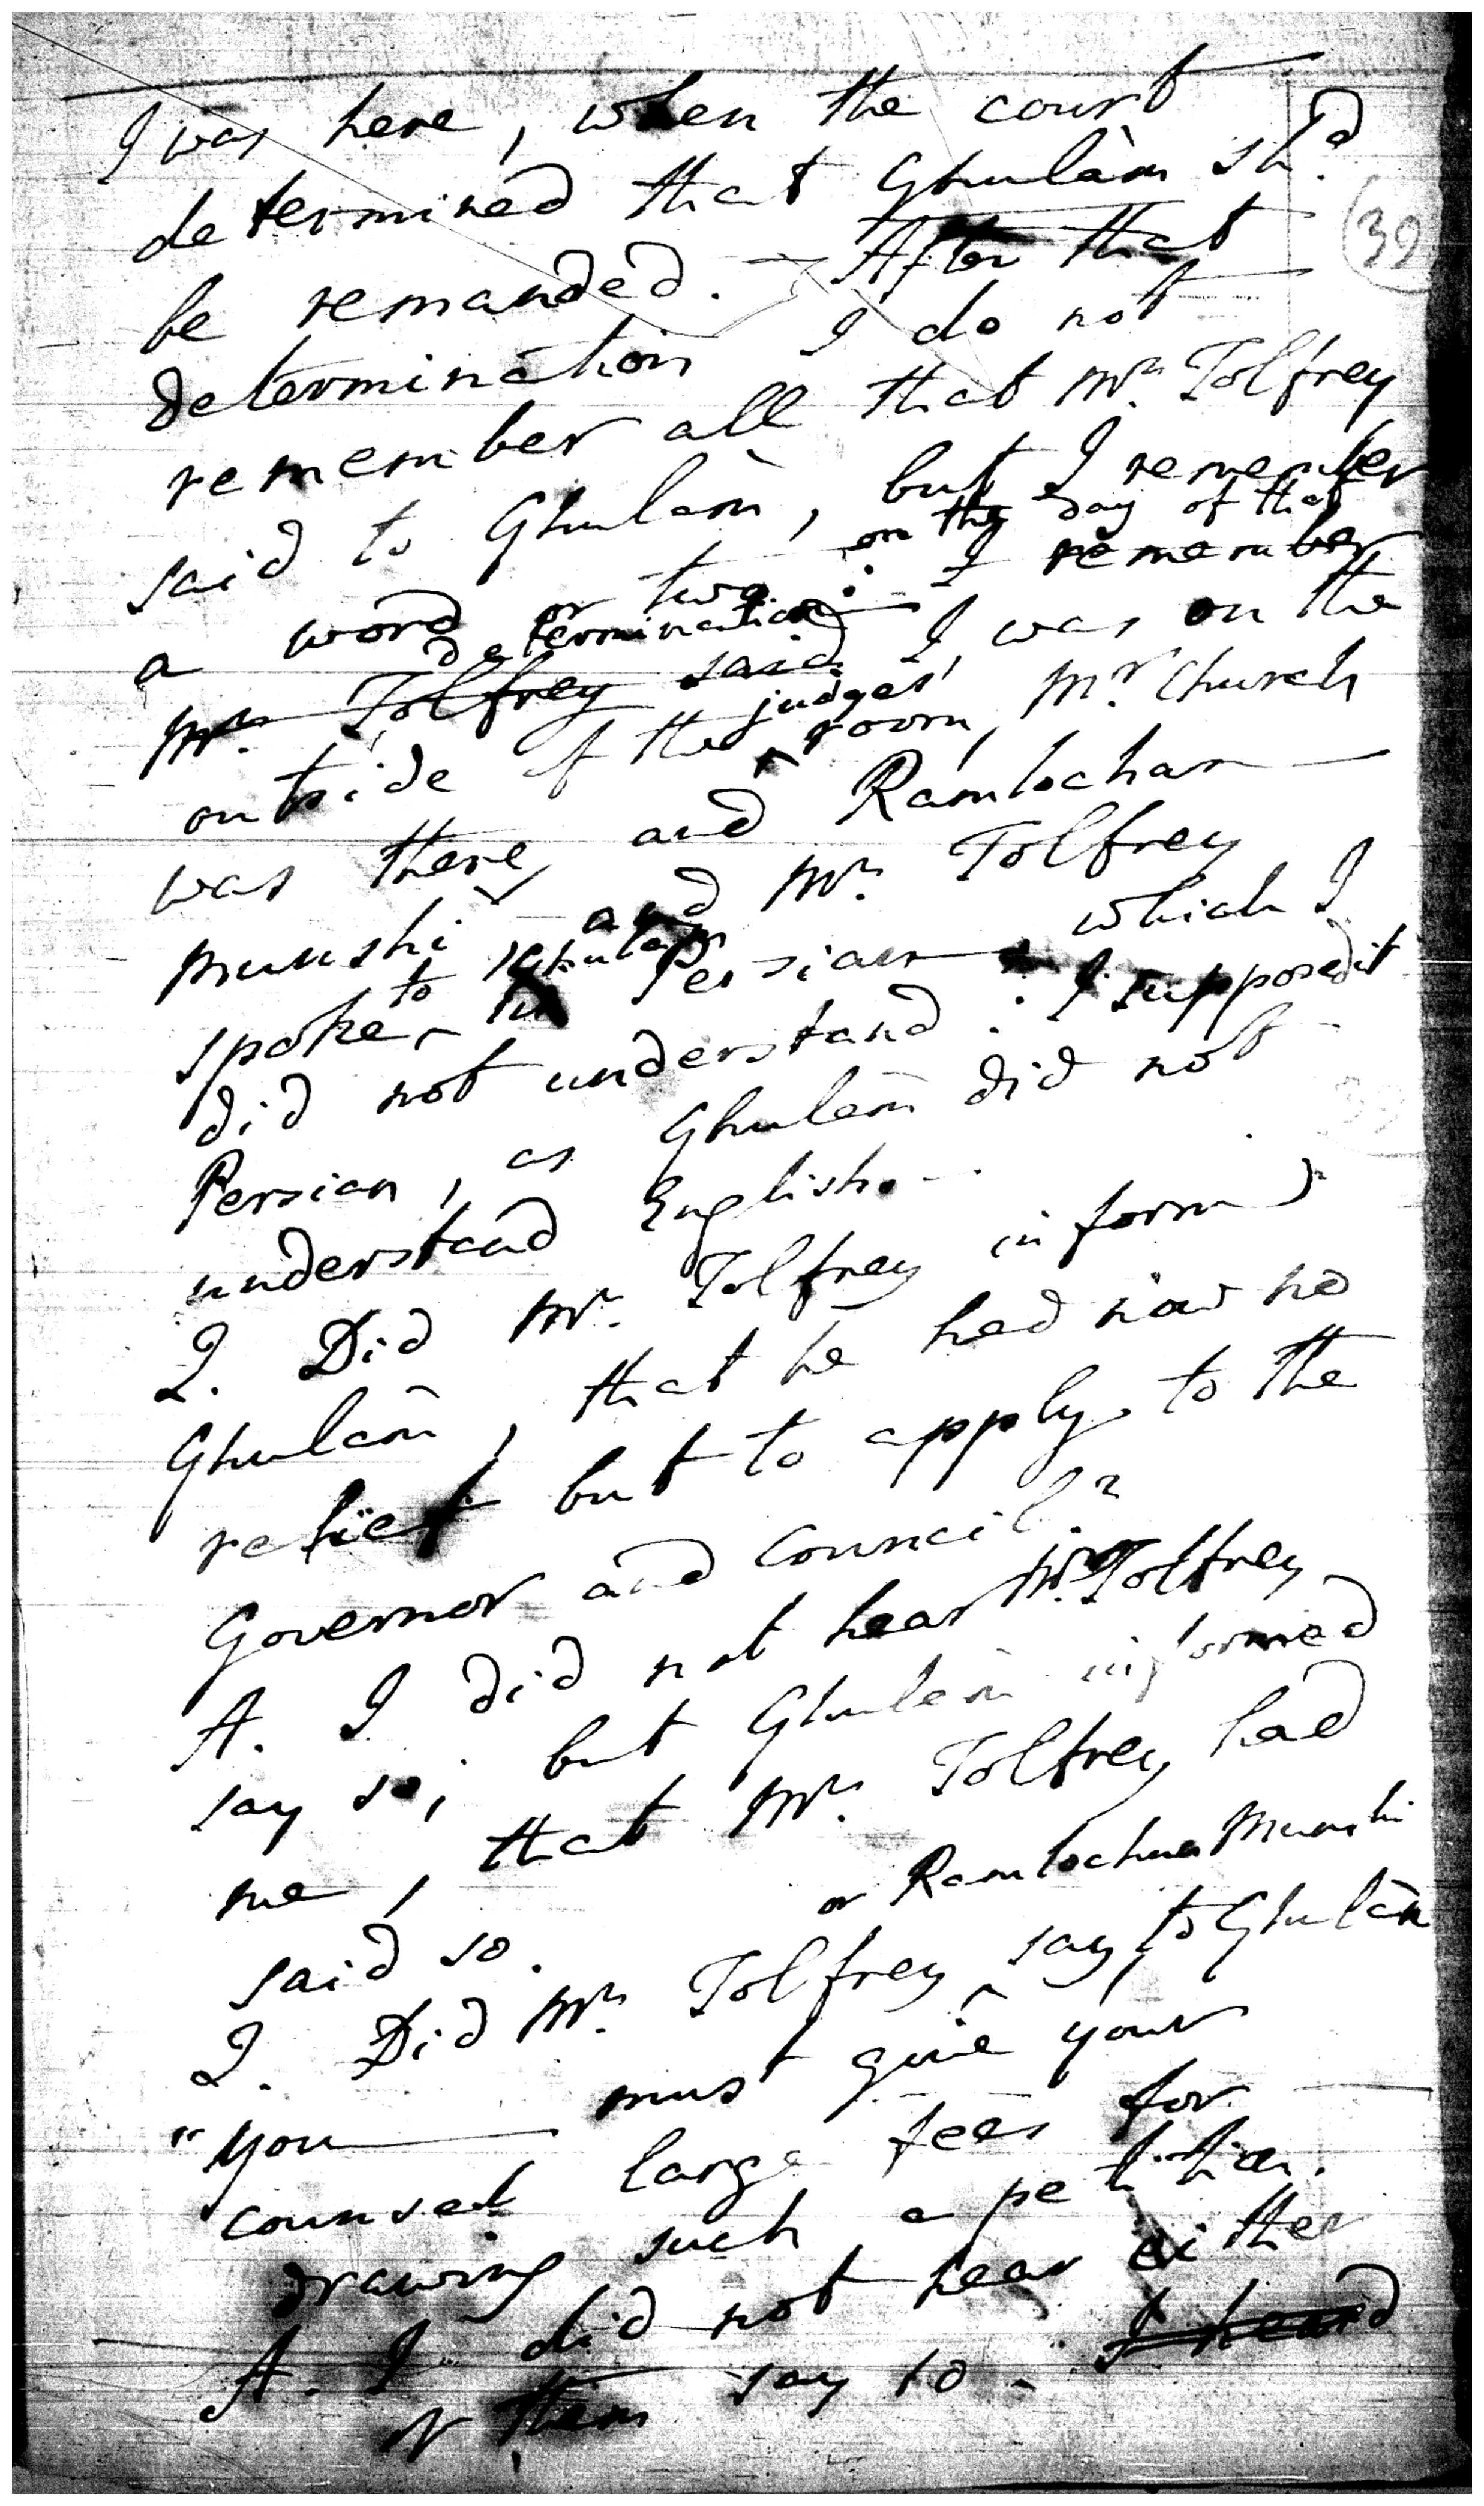 I was here, when the court
determined that Ghulàm shd.
(39)
be remanded. — After that
determination I do not
remember all that Mr. Tolfrey
said to Ghulàm, but I remember
a word or two: I remember
on the day of that
determination
Mr. Tolfrey said I was on the
outside of the judges' room, Mr. Church
was there, and Ramlochan
Munshi and Mr. Tolfrey
spoke to Ghulàm in Persian which I
did not understand: I supposed it
Persian, as Ghulàm did not
understand English. —
Q. Did Mr. Tolfrey inform
Ghulàm, that he had now no
relief but to apply to the
Governor and Council?
A. I did not hear Mr. Tolfrey
say so, but Ghulàm informed
me, that Mr. Tolfrey had
said so.
or Ramlochan Munshi
Q. Did Mr. Tolfrey say to Ghulàm
"You must give your
counsel large fees for
drawing such a petition.
A. I did not hear either
of them say so — I heard